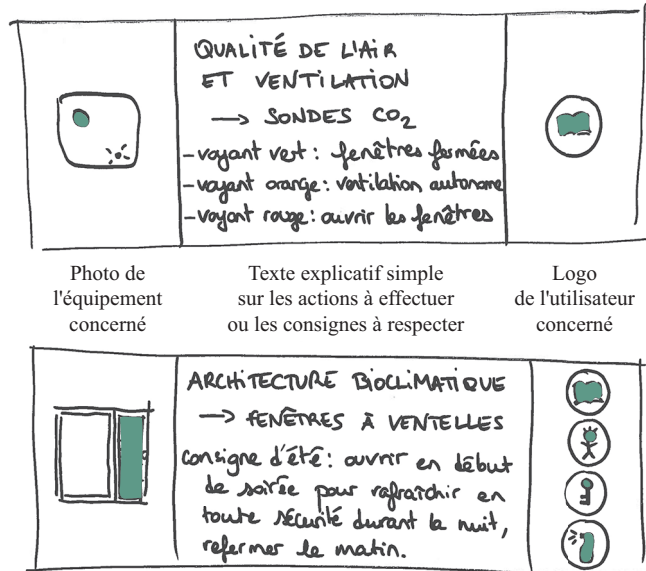 QUALITÉ DE L'AIR
ET VENTILATION
→ SONDES CO₂
- voyant vert : fenêtres fermées
- voyant orange : ventilation autonome
- voyant rouge : ouvrir les fenêtres
Photo de
l'équipement
concerné
Texte explicatif simple
sur les actions à effectuer
ou les consignes à respecter
Logo
de l'utilisateur
concerné
ARCHITECTURE BIOCLIMATIQUE
→ FENÊTRES À VENTELLES
consigne d'été : ouvrir en début
de soirée pour rafraîchir en
toute sécurité durant la nuit,
refermer le matin.